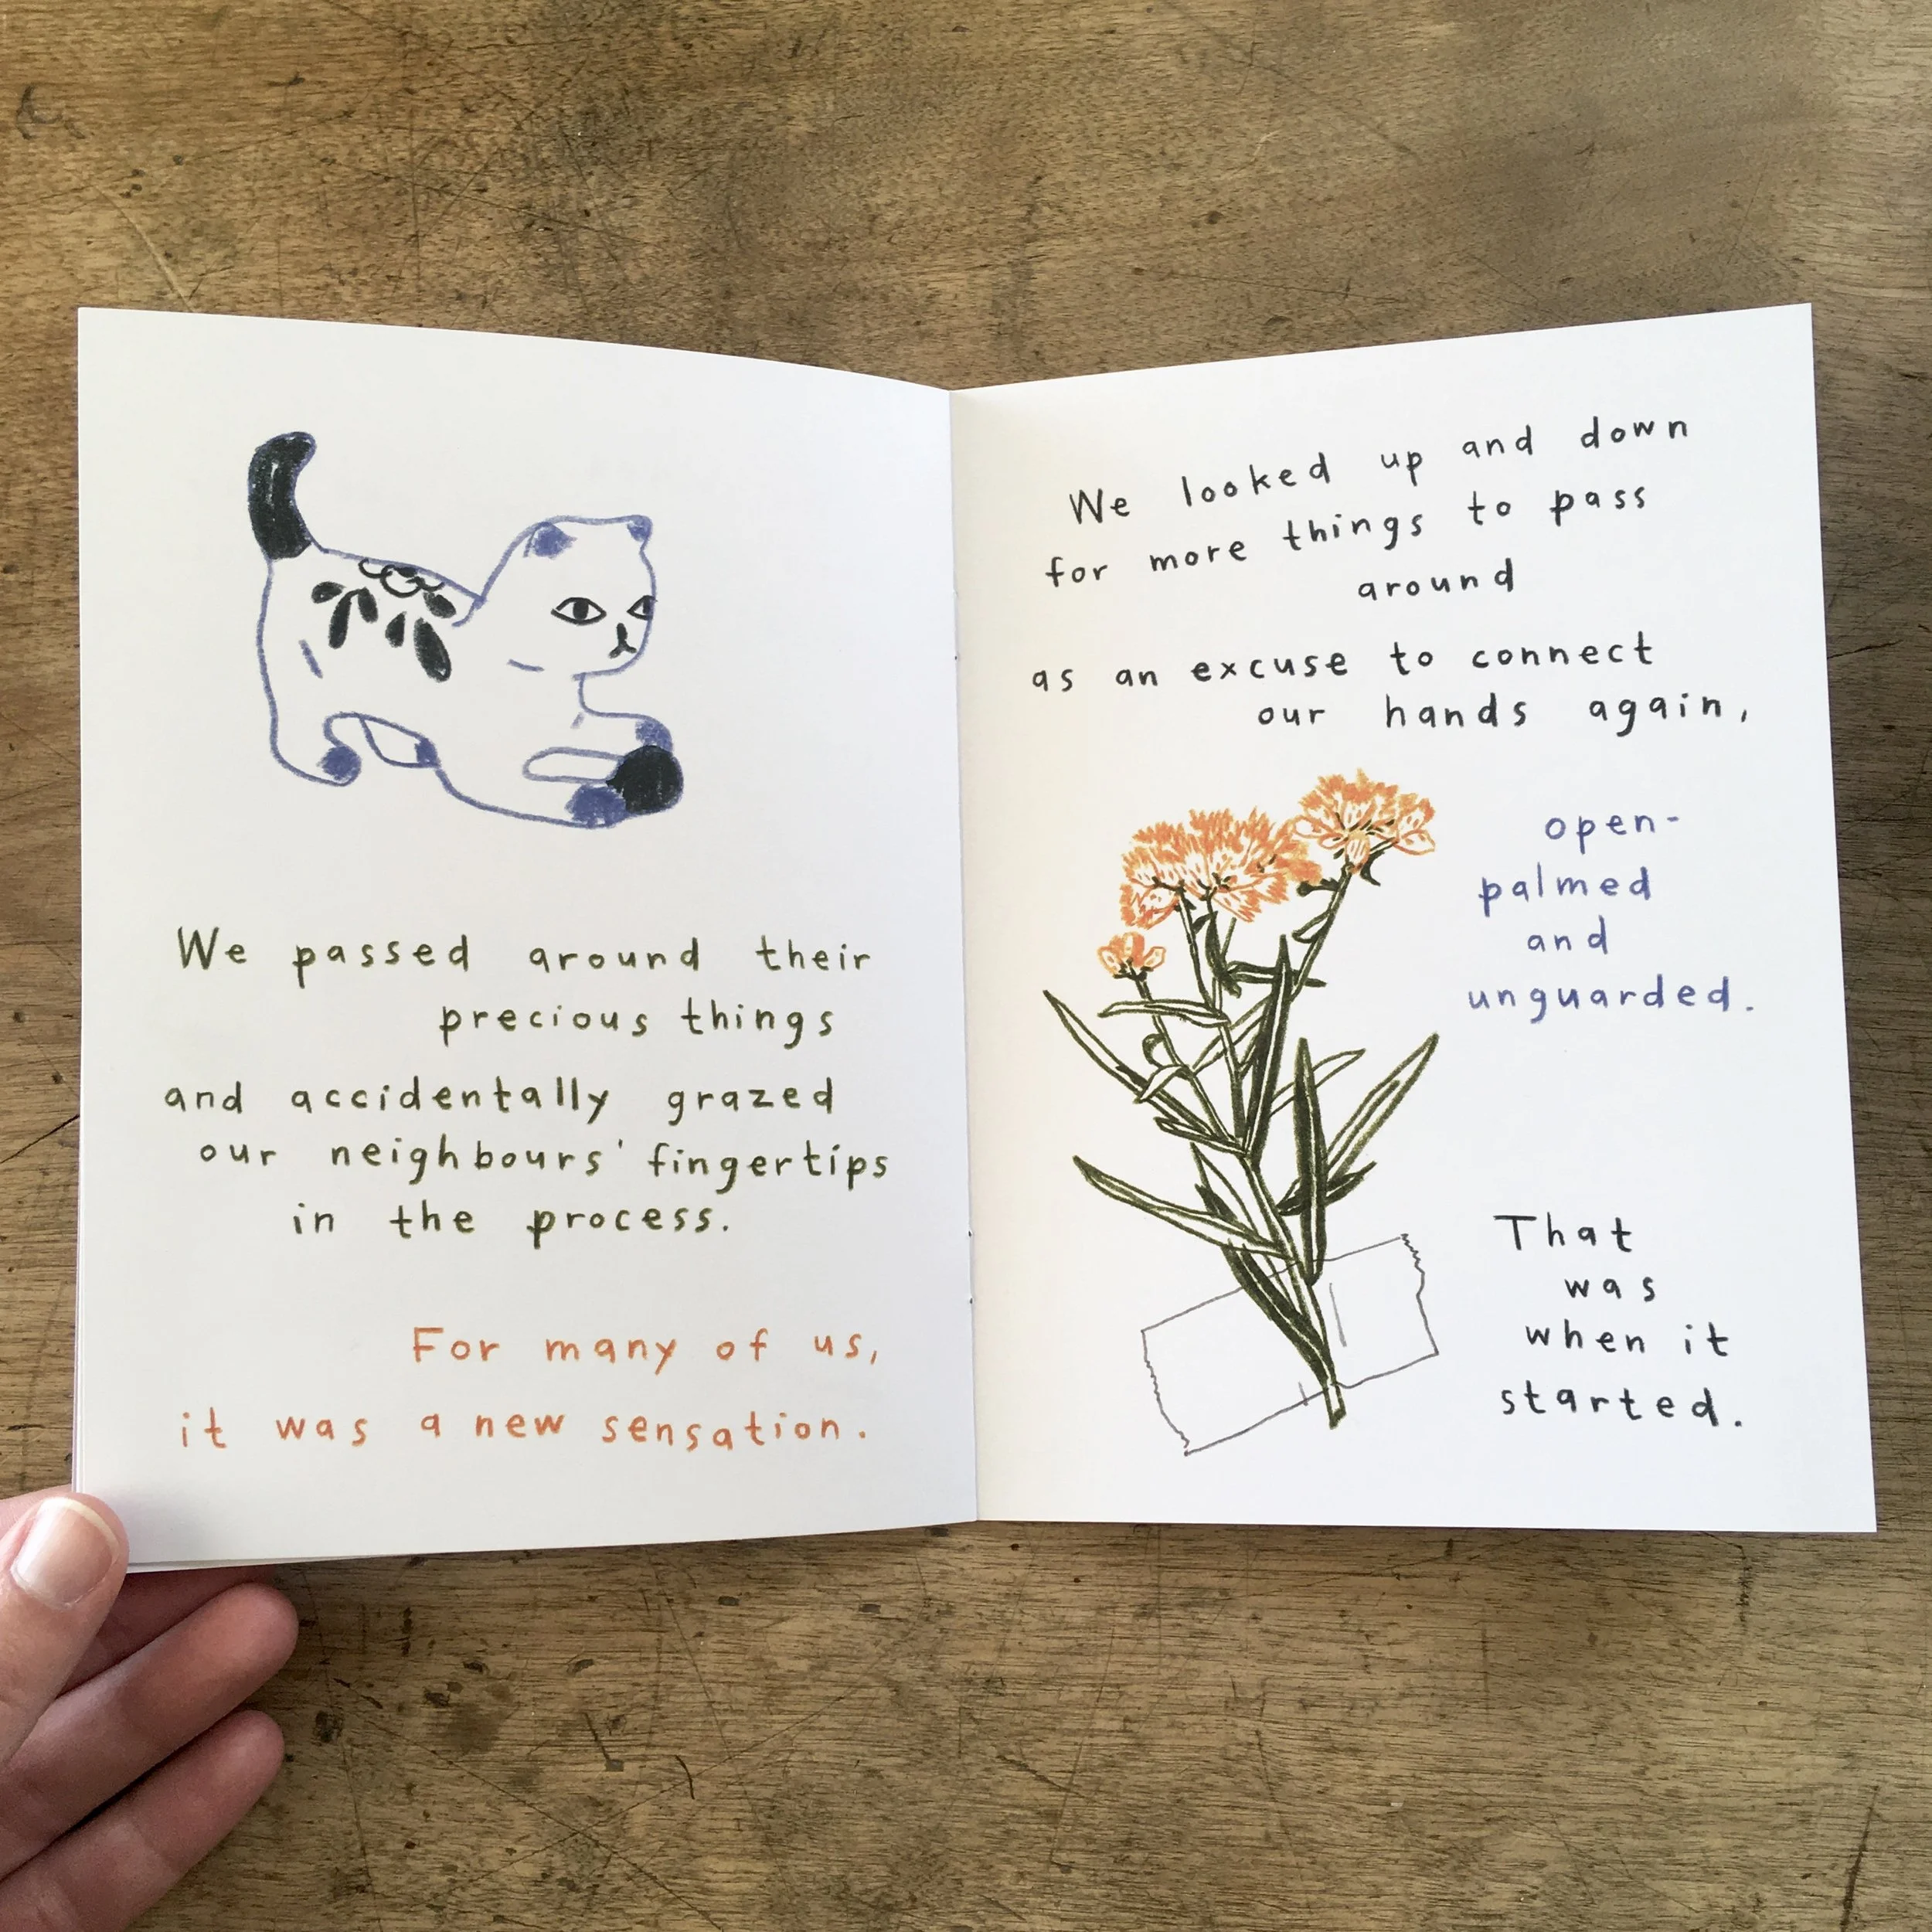 We passed around their
precious things
and accidentally grazed
our neighbours' fingertips
in the process.
For many of us,
it was a new sensation.
We looked up and down
for more things to pass
around
as an excuse to connect
our hands again,
open-
palmed
and
unguarded.
That
was
when it
started.